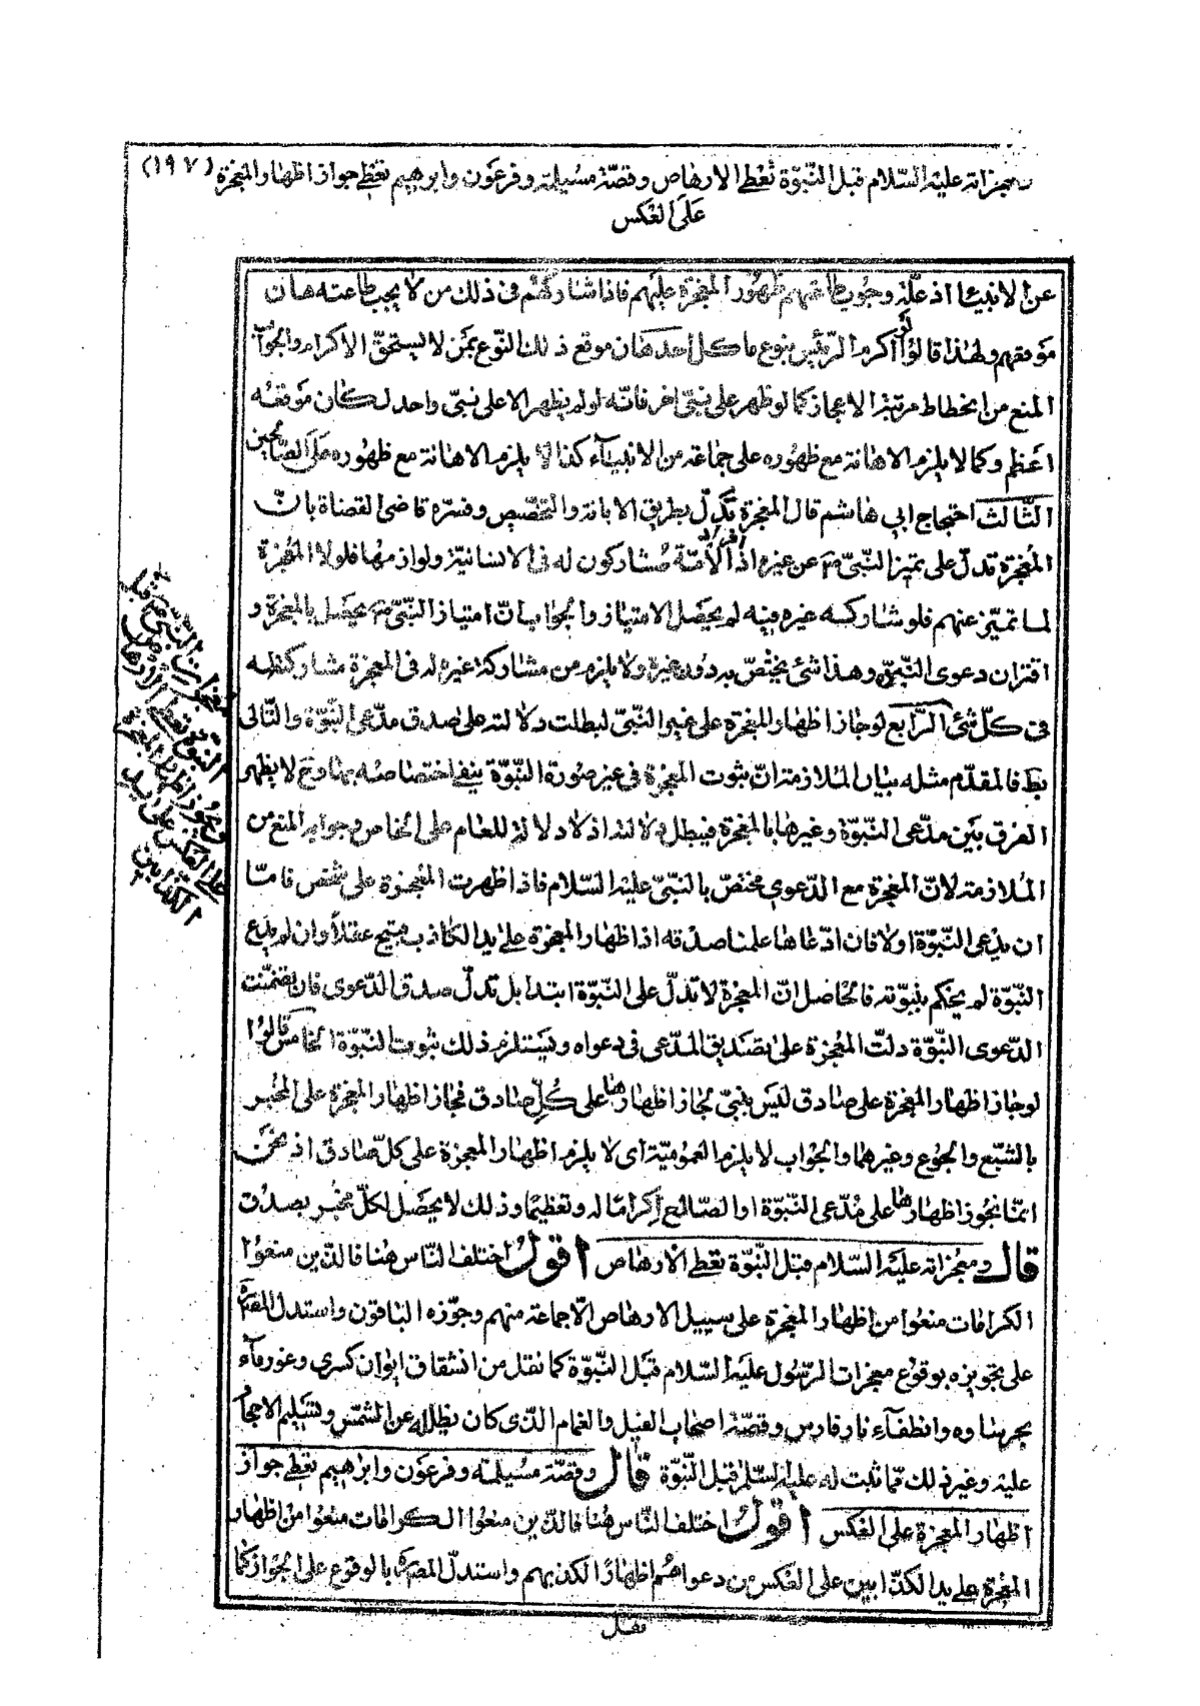 معجزاته عليه السّلام قبل النّبوّة تعطى الارهاص وقصّة مسيلمة وفرعون وابرهيم تعطى جواز اظهار المعجزة (١٩٧)
على العكس
عن الانبياء اذ علّة وجوب طاعتهم ظهور المعجزة عليهم فاذا شاركهم فى ذلك من لا يجب طاعته هان
موقعهم ولهذا قالوا لو اكرم الرّئيس بنوع ما كلّ احد هان موقع ذلك النّوع بمن لا يستحقّ الاكرام والجواب
المنع من انحطاط مرتبة الاعجاز كما لو ظهر على نبىّ اخر فانّه لو لم يظهر الا على نبىّ واحد لكان موقعه
اعظم وكما لا يلزم الاهانة مع ظهوره على جماعة من الانبياء كذا لا يلزم الاهانة مع ظهوره على الصّالحين
الثّالث احتجاج ابي هاشم قال المعجزة تدلّ بطريق الابانة والتخصّيص وفسّره قاضى القضاة بانّ
المعجزة تدلّ على تميز النّبىّ ص عن غيره اذ افراد الامّة مشاركون له فى الانسانيّة ولوازمها فلولا المعجزة
لما تميّز عنهم فلو شاركه غيره فيه لم يحصل الامتياز والجواب انّ امتياز النّبىّ ص يحصل بالمعجزة و
اقتران دعوى النّبوّة وهذا شئ يختصّ به دون غيره ولا يلزم من مشاركة غيره له فى المعجزة مشاركته له
فى كلّ شئ الرّابع لو جاز اظهار المعجزة على غير النّبىّ لبطلت دلالته على صدق مدّعى النّبوّة والتّالى
بط فالمقدّم مثله بيان الملازمة انّ ثبوت المعجزة فى غير صورة النّبوّة ينفى اختصاصه بها وح لا يظهر
الفرق بين مدّعى النّبوّة وغيرها بالمعجزة فيبطل دلالته اذ لا دلالة للعام على الخاص وجوابه المنع من
الملازمة لانّ المعجزة مع الدّعوى مختصّ بالنّبىّ عليه السّلام فاذا ظهرت المعجزة على شخص فامّا
ان يدّعى النّبوّة اولا فان ادّعاها علمنا صدقه اذ اظهار المعجزة على يد الكاذب قبيح عقلاً وان لم يدّع
النّبوّة لم يحكم بنبوّته فالحاصل انّ المعجزة لا تدلّ على النّبوّة ابتداء بل تدلّ صدق الدّعوى فان تضمّنت
الدّعوى النّبوّة دلّت المعجزة على تصديق المدّعى فى دعواه ويستلزم ذلك ثبوت النّبوّة الخامس قالوا
لو جاز اظهار المعجزة على صادق ليس بنبىّ لجاز اظهارها على كلّ صادق فجاز اظهار المعجزة على المخبر
بالشبع والجوع وغيرهما والجواب لا يلزم العموميّة اى لا يلزم اظهار المعجزة على كلّ صادق اذ نحن
انّما نجوز اظهارها على مدّعى النّبوّة او الصّالح اكراما له وتعظيما وذلك لا يحصل لكلّ مخبر بصدق
قال ومعجزاته عليه السّلام قبل النّبوّة تعطى الارهاص اقول اختلف النّاس هنا فالّذين منعوا
الكرامات منعوا من اظهار المعجزة على سبيل الارهاص الّا جماعة منهم وجوّزه الباقون واستدل المصره
على تجويزه بوقوع معجزات الرّسول عليه السّلام قبل النّبوّة كما نقل من انشقاق ايوان كسرى وغور ماء
بحر ساوه وانطفاء نار فارس وقصّة اصحاب الفيل والغمام الّذى كان يظلله عن الشمس وتسليم الاحجار
عليه وغير ذلك ممّا ثبت له عليه السّلم قبل النّبوّة قال وقصّة مسيلمة وفرعون وابرهيم تعطى جواز
اظهار المعجزة على العكس اقول اختلف النّاس هنا فالّذين منعوا الكرامات منعوا من اظهار
المعجزة على يد الكذّابين على العكس من دعواهم اظهارًا لكذبهم واستدلّ المصره بالوقوع على الجواز كما
نقل
معجزات النّبى ص قبل
النبوّة تعطى الارهاص
ويجوز اظهار المعجزة
على العكس على يد
الكذّابين